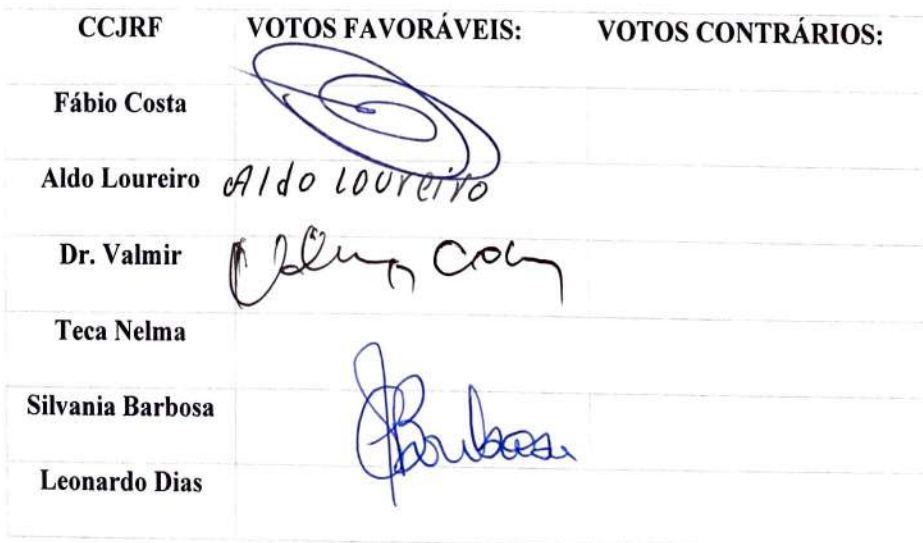 CCJRF VOTOS FAVORÁVEIS: VOTOS CONTRÁRIOS:
Fábio Costa
Aldo Loureiro Aldo Loureiro
Dr. Valmir
Teca Nelma
Silvania Barbosa Barbosa
Leonardo Dias